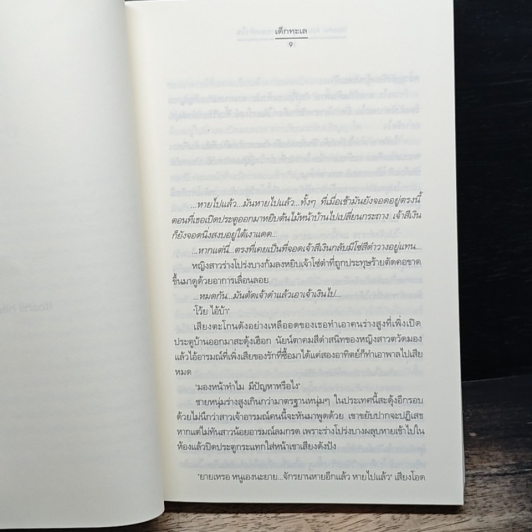 เด็กทะเล
9
...หายไปแล้ว...มันหายไปแล้ว...ทั้งๆ ที่เมื่อเช้ามันยังจอดอยู่ตรงนี้
ตอนที่เธอเปิดประตูออกมาหยิบต้นไม้หน้าบ้านไปเปลี่ยนกระถาง เจ้าสีเงิน
ก็ยังจอดนิ่งสงบอยู่ใต้เงาแดด...
...หากแต่นี่...ตรงที่เคยเป็นที่จอดเจ้าสีเงินกลับมีโซ่สีดำวางอยู่แทน...
หญิงสาวร่างโปร่งบางก้มลงหยิบเจ้าโซ่ดำที่ถูกประทุษร้ายตัดคอขาด
ขึ้นมาดูด้วยอาการเลื่อนลอย
...หมดกัน...มันตัดเจ้าดำแล้วเอาเจ้าเงินไป...
'โว้ย ไอ้บ้า'
เสียงตะโกนดังอย่างเหลืออดของเธอทำเอาคนร่างสูงที่เพิ่งเปิด
ประตูบ้านออกมาสะดุ้งเฮือก นัยน์ตาคมสีดำสนิทของหญิงสาวตวัดมอง
แล้วไอ้อารมณ์ที่เพิ่งเสียของรักที่ซื้อมาได้แค่สองอาทิตย์ก็ทำเอาพาลไปเสีย
หมด
'มองหน้าทำไม มีปัญหาหรือไง'
ชายหนุ่มร่างสูงเกินกว่ามาตรฐานหนุ่มๆ ในประเทศนี้สะดุ้งอีกรอบ
ด้วยไม่นึกว่าสาวเจ้าอารมณ์คนนี้จะหันมาพูดด้วย เขาขยับปากจะปฏิเสธ
หากแต่ไม่ทันสาวน้อยอารมณ์ลมกรด เพราะร่างโปร่งบางผลุบหายเข้าไปใน
ห้องแล้วปิดประตูกระแทกใส่หน้าเขาเสียงดังปัง
'ยายเหรอ หนูเองนะยาย...จักรยานหายอีกแล้ว หายไปแล้ว' เสียงโอด